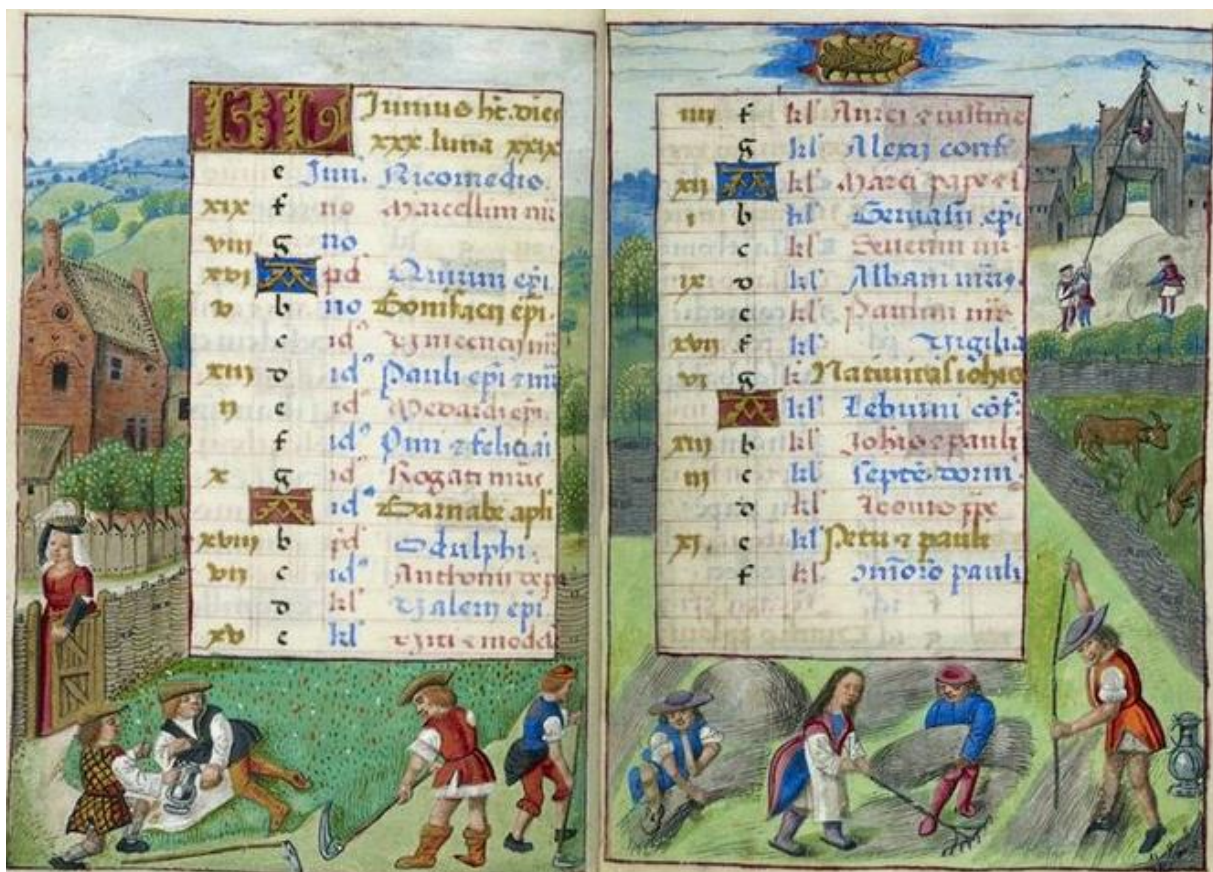 KL Junius ht. dies
xxx. luna xxix
e Juni. Nicomedis.
xix f no Marcellini
viii g no
xvi A pd Quirini epi
v b no Bonifacii epi.
c id
xiii d id Pauli epi
ii e id Medardi epi.
f id Pimi & feliciani
x g id Rogati
A id Barnabe apli
xviii b id Odulphi.
vii c id Anthonii
d kl Valerii epi
xv e kl Viti & mode
iiii f kl
g kl Alexii conf.
xii A kl Marci pape
i b kl Gervasii epi
c kl Severini
ix d kl Albani
e kl Paulini
xvii f kl Vigilia
vi g k Nativitas iohis
A kl Lebuini cof.
b kl Johis & pauli
iii c kl septe dormi
d kl Leonis ppe
xi. e kl Petri & pauli
f kl pauli